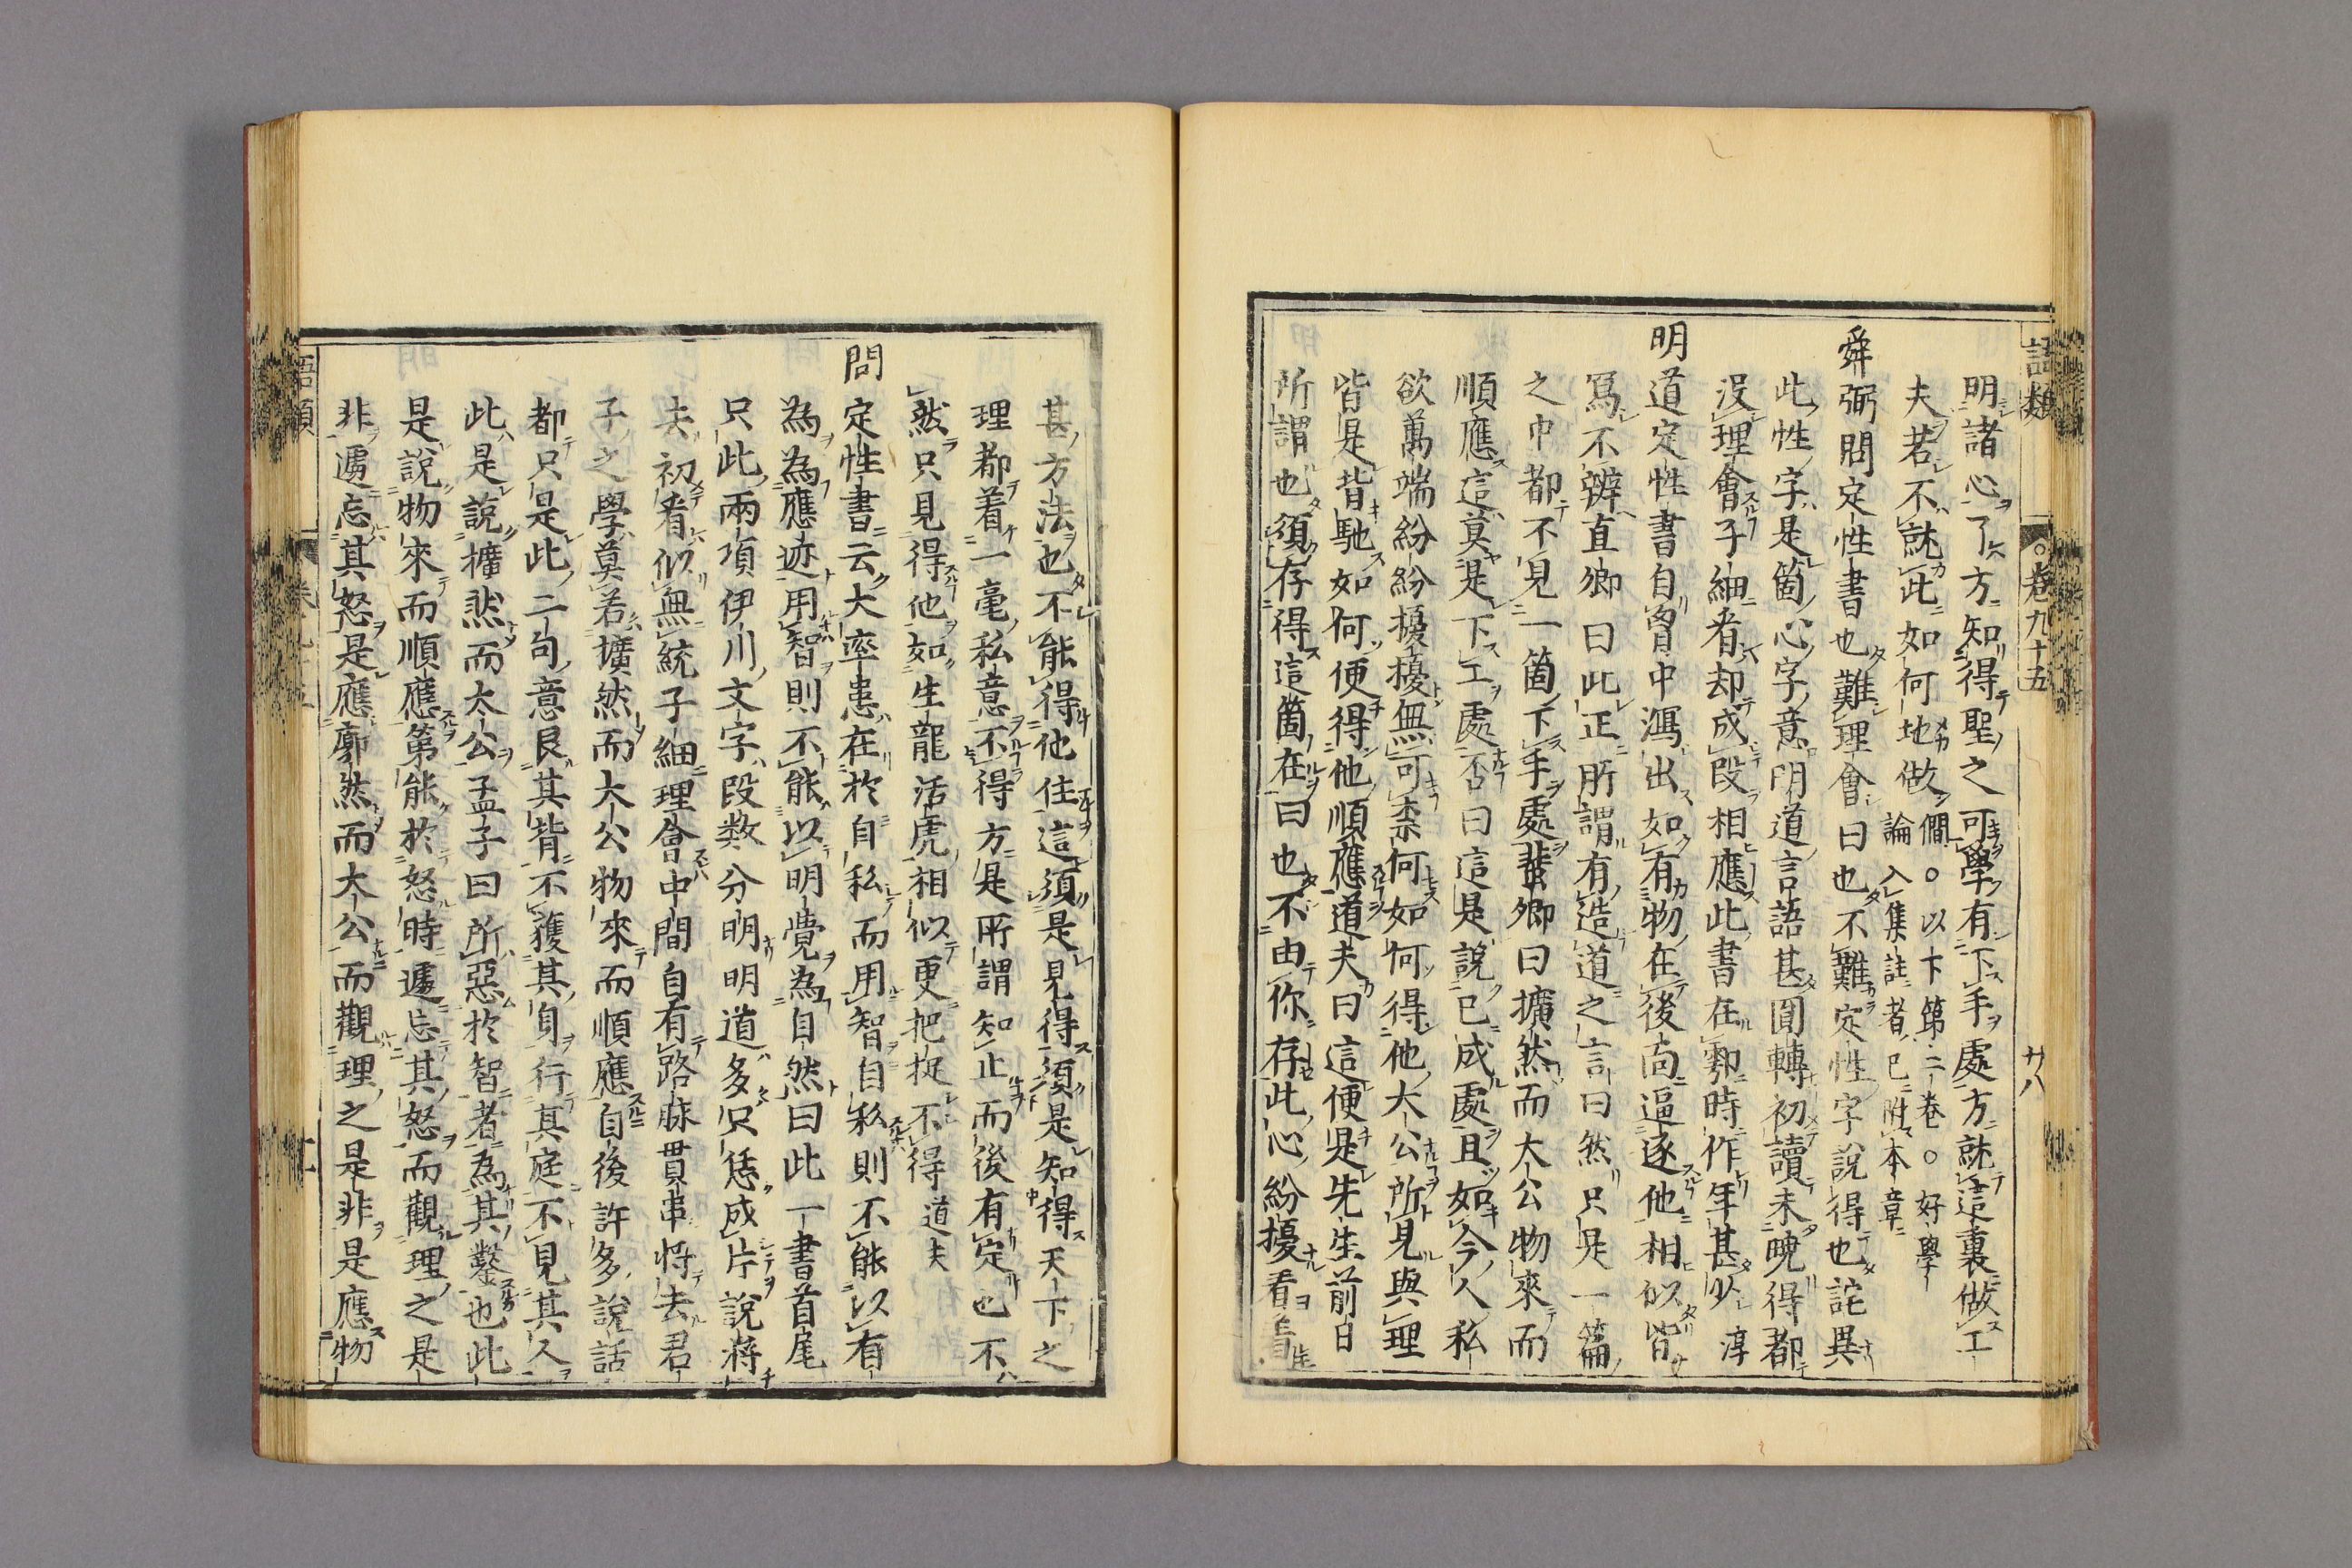 語類
卷九十五
廿八
明諸心了方知得聖之可學有下手處方就這裏做工
夫若不就此如何地做僩○以下第二卷○好學
論入集註者已附本章
舜弼問定性書也難理會曰也不難定性字說得也詫異
此性字是箇心字意明道言語甚圓轉初讀未曉得都
沒理會子細看却成段相應此書在鄠時作年甚少淳
明道定性書自胷中瀉出如有物在後面逼逐他相似皆
寫不辦直卿曰此正所謂有造道之言曰然只是一篇
之中都不見一箇下手處蜚卿曰擴然而大公物來而
順應這莫是下工處否曰這是說已成處且如今人私
欲萬端紛紛擾擾無可柰何如何得他大公所見與理
皆是背馳如何便得他順應道夫曰這便是先生前日
所謂也須存得這箇在曰也不由你存此心紛擾看着
甚方法也不能得他住這須是見得須是知得天下之
理都着一毫私意不得方是所謂知止而後有定也不
然只見得他如生龍活虎相似更把捉不得道夫
問定性書云大率患在於自私而用智自私則不能以有
為為應迹用智則不能以明覺為自然曰此一書首尾
只此兩項伊川文字段数分明明道多只恁成片說將
去初看似無統子細理會中間自有路脉貫串將去君
子之學莫若擴然而大公物來而順應自後許多說話
都只是此二句意艮其背不獲其身行其庭不見其人
此是說擴然而大公孟子曰所惡於智者為其鑿也此
是說物來而順應第能於怒時遽忘其怒而觀理之是
非遽忘其怒是應廓然而大公而觀理之是非是應物
語類